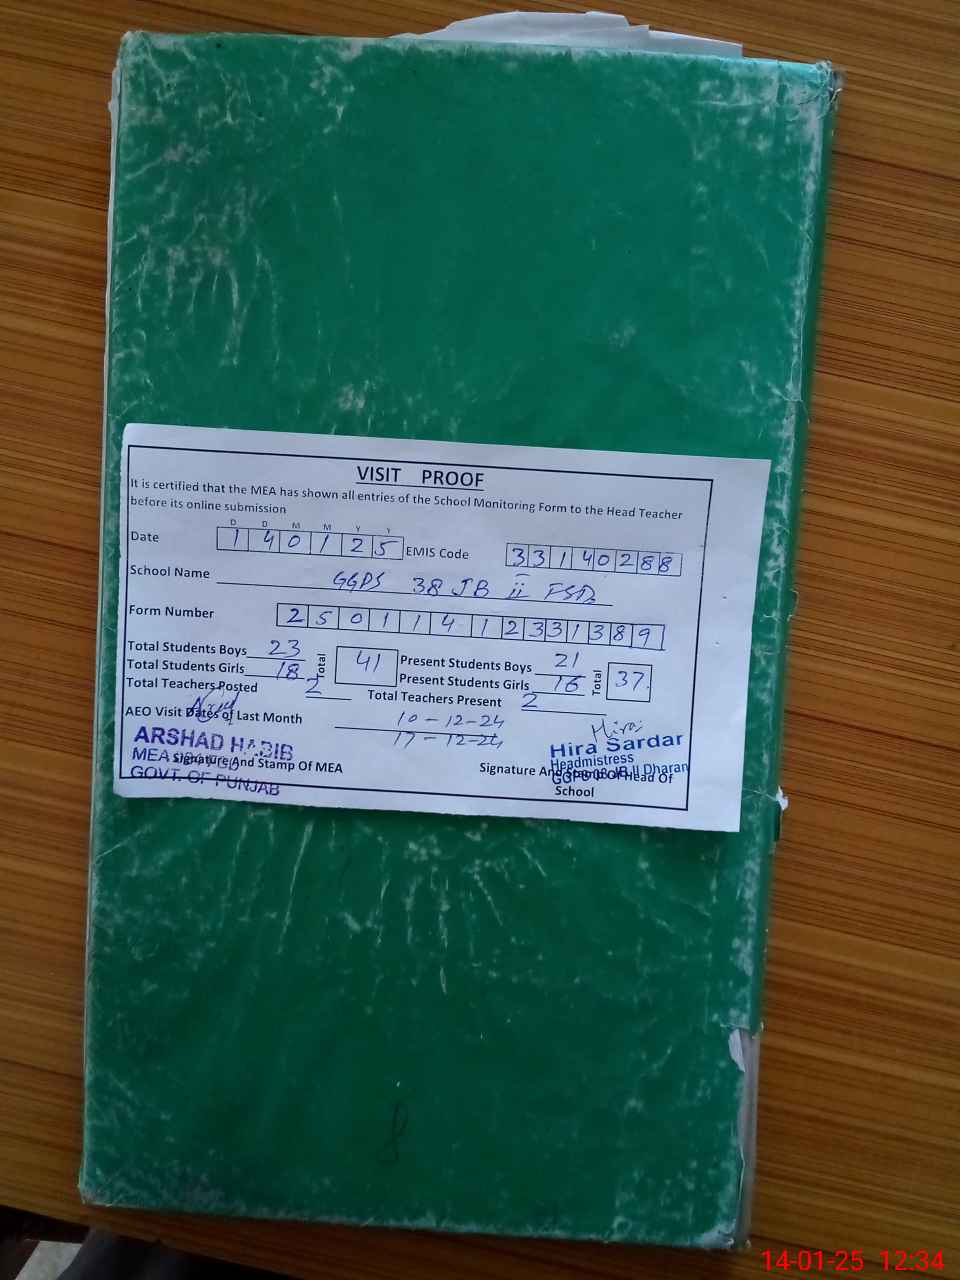 VISIT PROOF
It is certified that the MEA has shown all entries of the School Monitoring Form to the Head Teacher
before its online submission
D D M M Y Y
Date 1 4 0 1 2 5 EMIS Code 3 3 1 4 0 2 8 8
School Name GGPS 38 JB ii FSD
Form Number 2 5 0 1 1 4 1 2 3 3 1 3 8 9
Total Students Boys 23 Total 41 Present Students Boys 21 Total 37
Total Students Girls 18 Present Students Girls 16
Total Teachers Posted 2 Total Teachers Present 2
AEO Visit Dates of Last Month 10-12-24
17-12-24
Hira
ARSHAD HABIB
MEA
GOVT. OF PUNJAB
Signature And Stamp Of MEA
Hira Sardar
Headmistress
JB II Dharan
Signature And Stamp Of Head Of
School
8
14-01-25 12:34